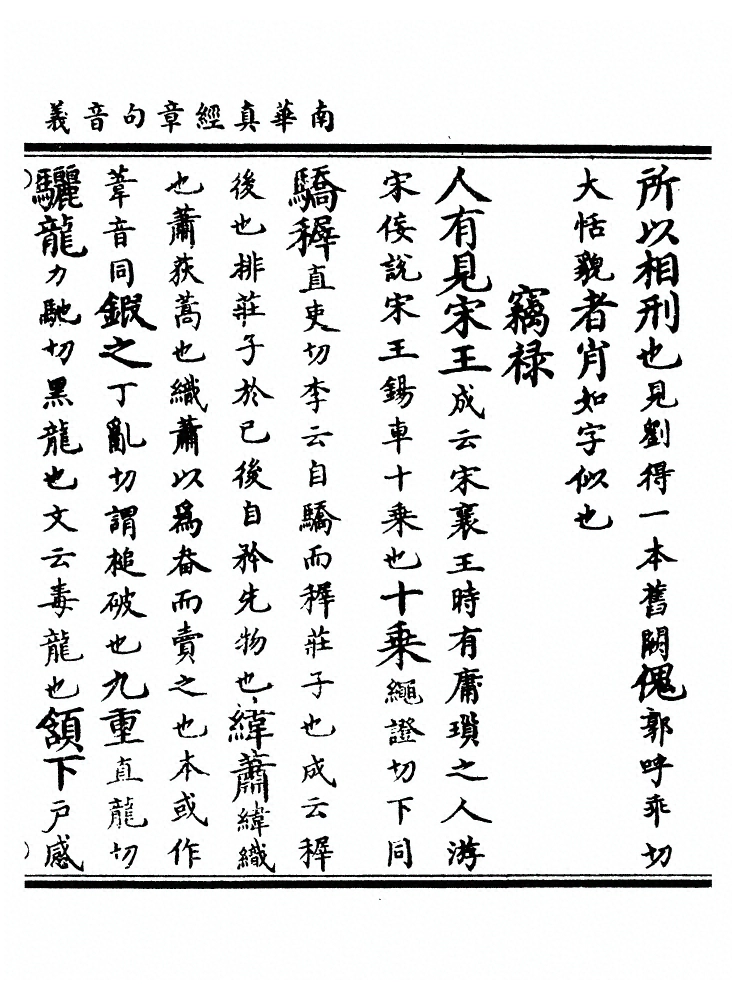 南華真經章句音義
所以相刑也見劉得一本舊闕傀郭呼乖切
大恬貌者肖如字似也
竊祿
人有見宋王成云宋襄王時有庸瑣之人游
宋倿說宋王錫車十乘也十乘繩證切下同
驕穉直吏切李云自驕而穉莊子也成云穉
後也排莊子於已後自矜先物也緯蕭緯織
也蕭荻蒿也織蕭以為畚而賣之也本或作
葦音同鍛之丁亂切謂槌破也九重直龍切
驪龍力馳切黑龍也文云毒龍也頷下戶感